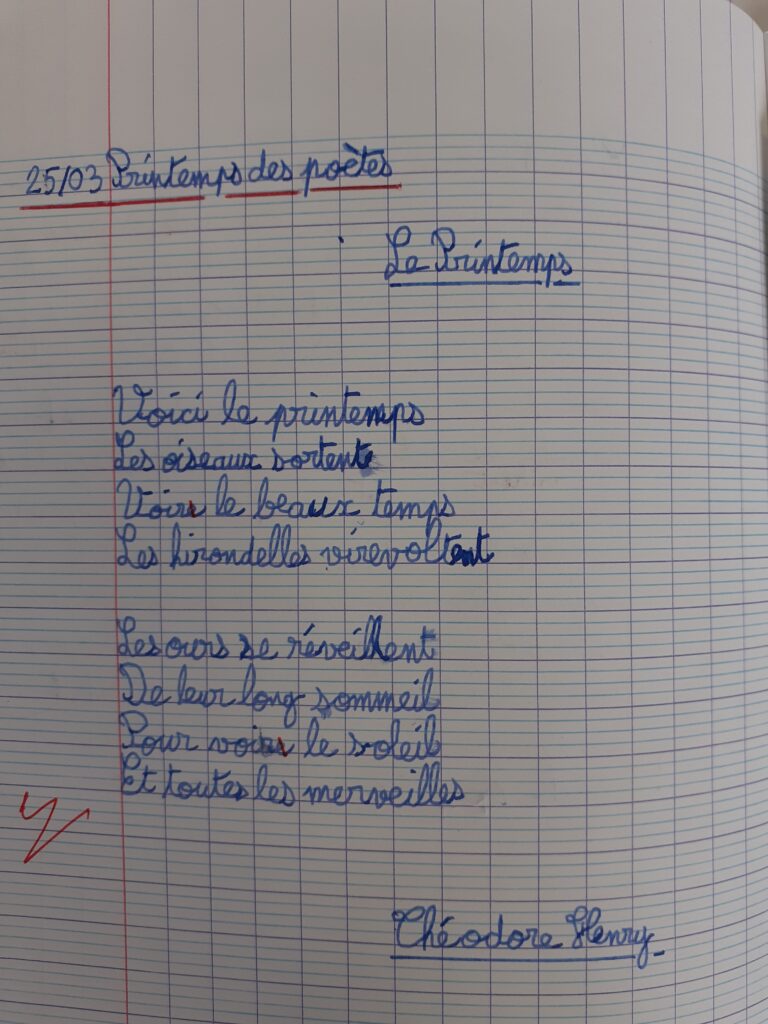 25/03 Printemps des poètes
Le Printemps
Voici le printemps
Les oiseaux sortent
Voir le beaux temps
Les hirondelles virevoltent
Les ours se réveillent
De leur long sommeil
Pour voir le soleil
Et toutes les merveilles
Théodore Henry